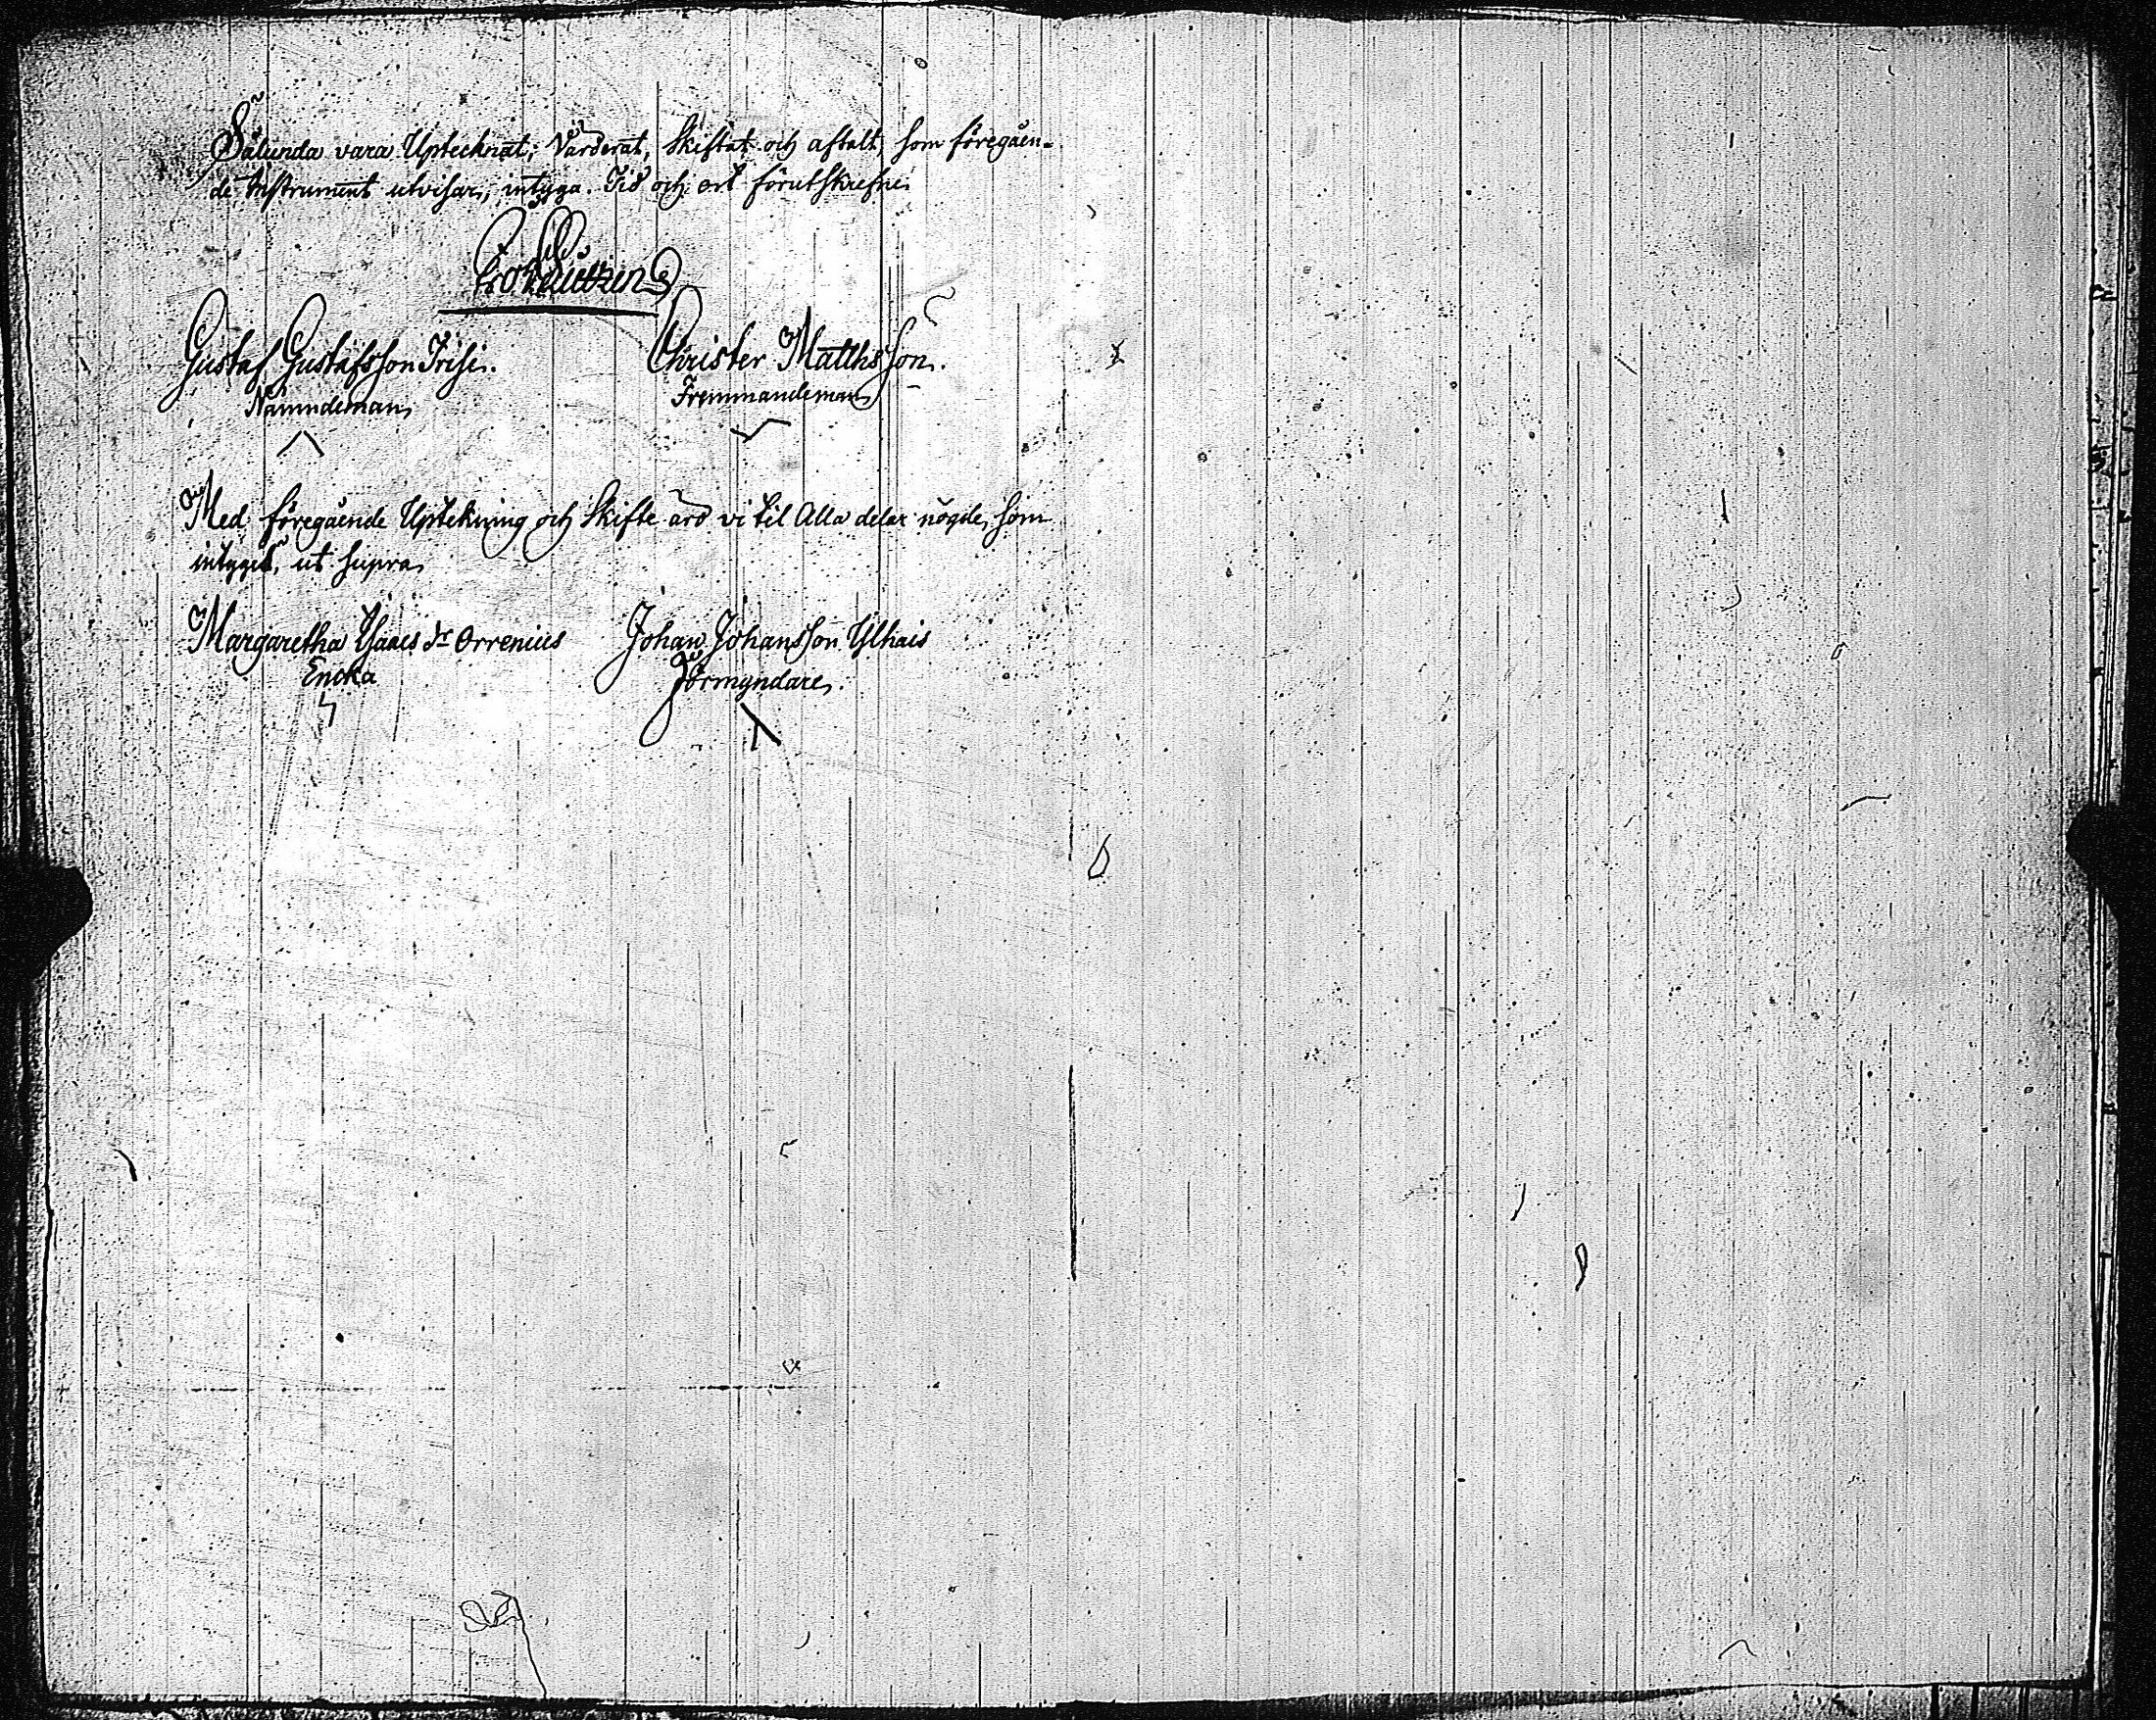 Sålunda vara Uptechnat, Värderat, Skiftat och aftalt, som föregåen-
de Instrument utvisar, intyga. Tid och ort förutskrefne
Gustaf Gustafsson Frisi. Christer Matthsson.
Nämndeman Fremmandeman
Med föregående Uptekning och Skifte äro vi til Alla delar nögde, som
intygas, ut supra
Margaretha Isaacs dr Orrenius Johan Johansson Ylhais
Encka Förmyndare.